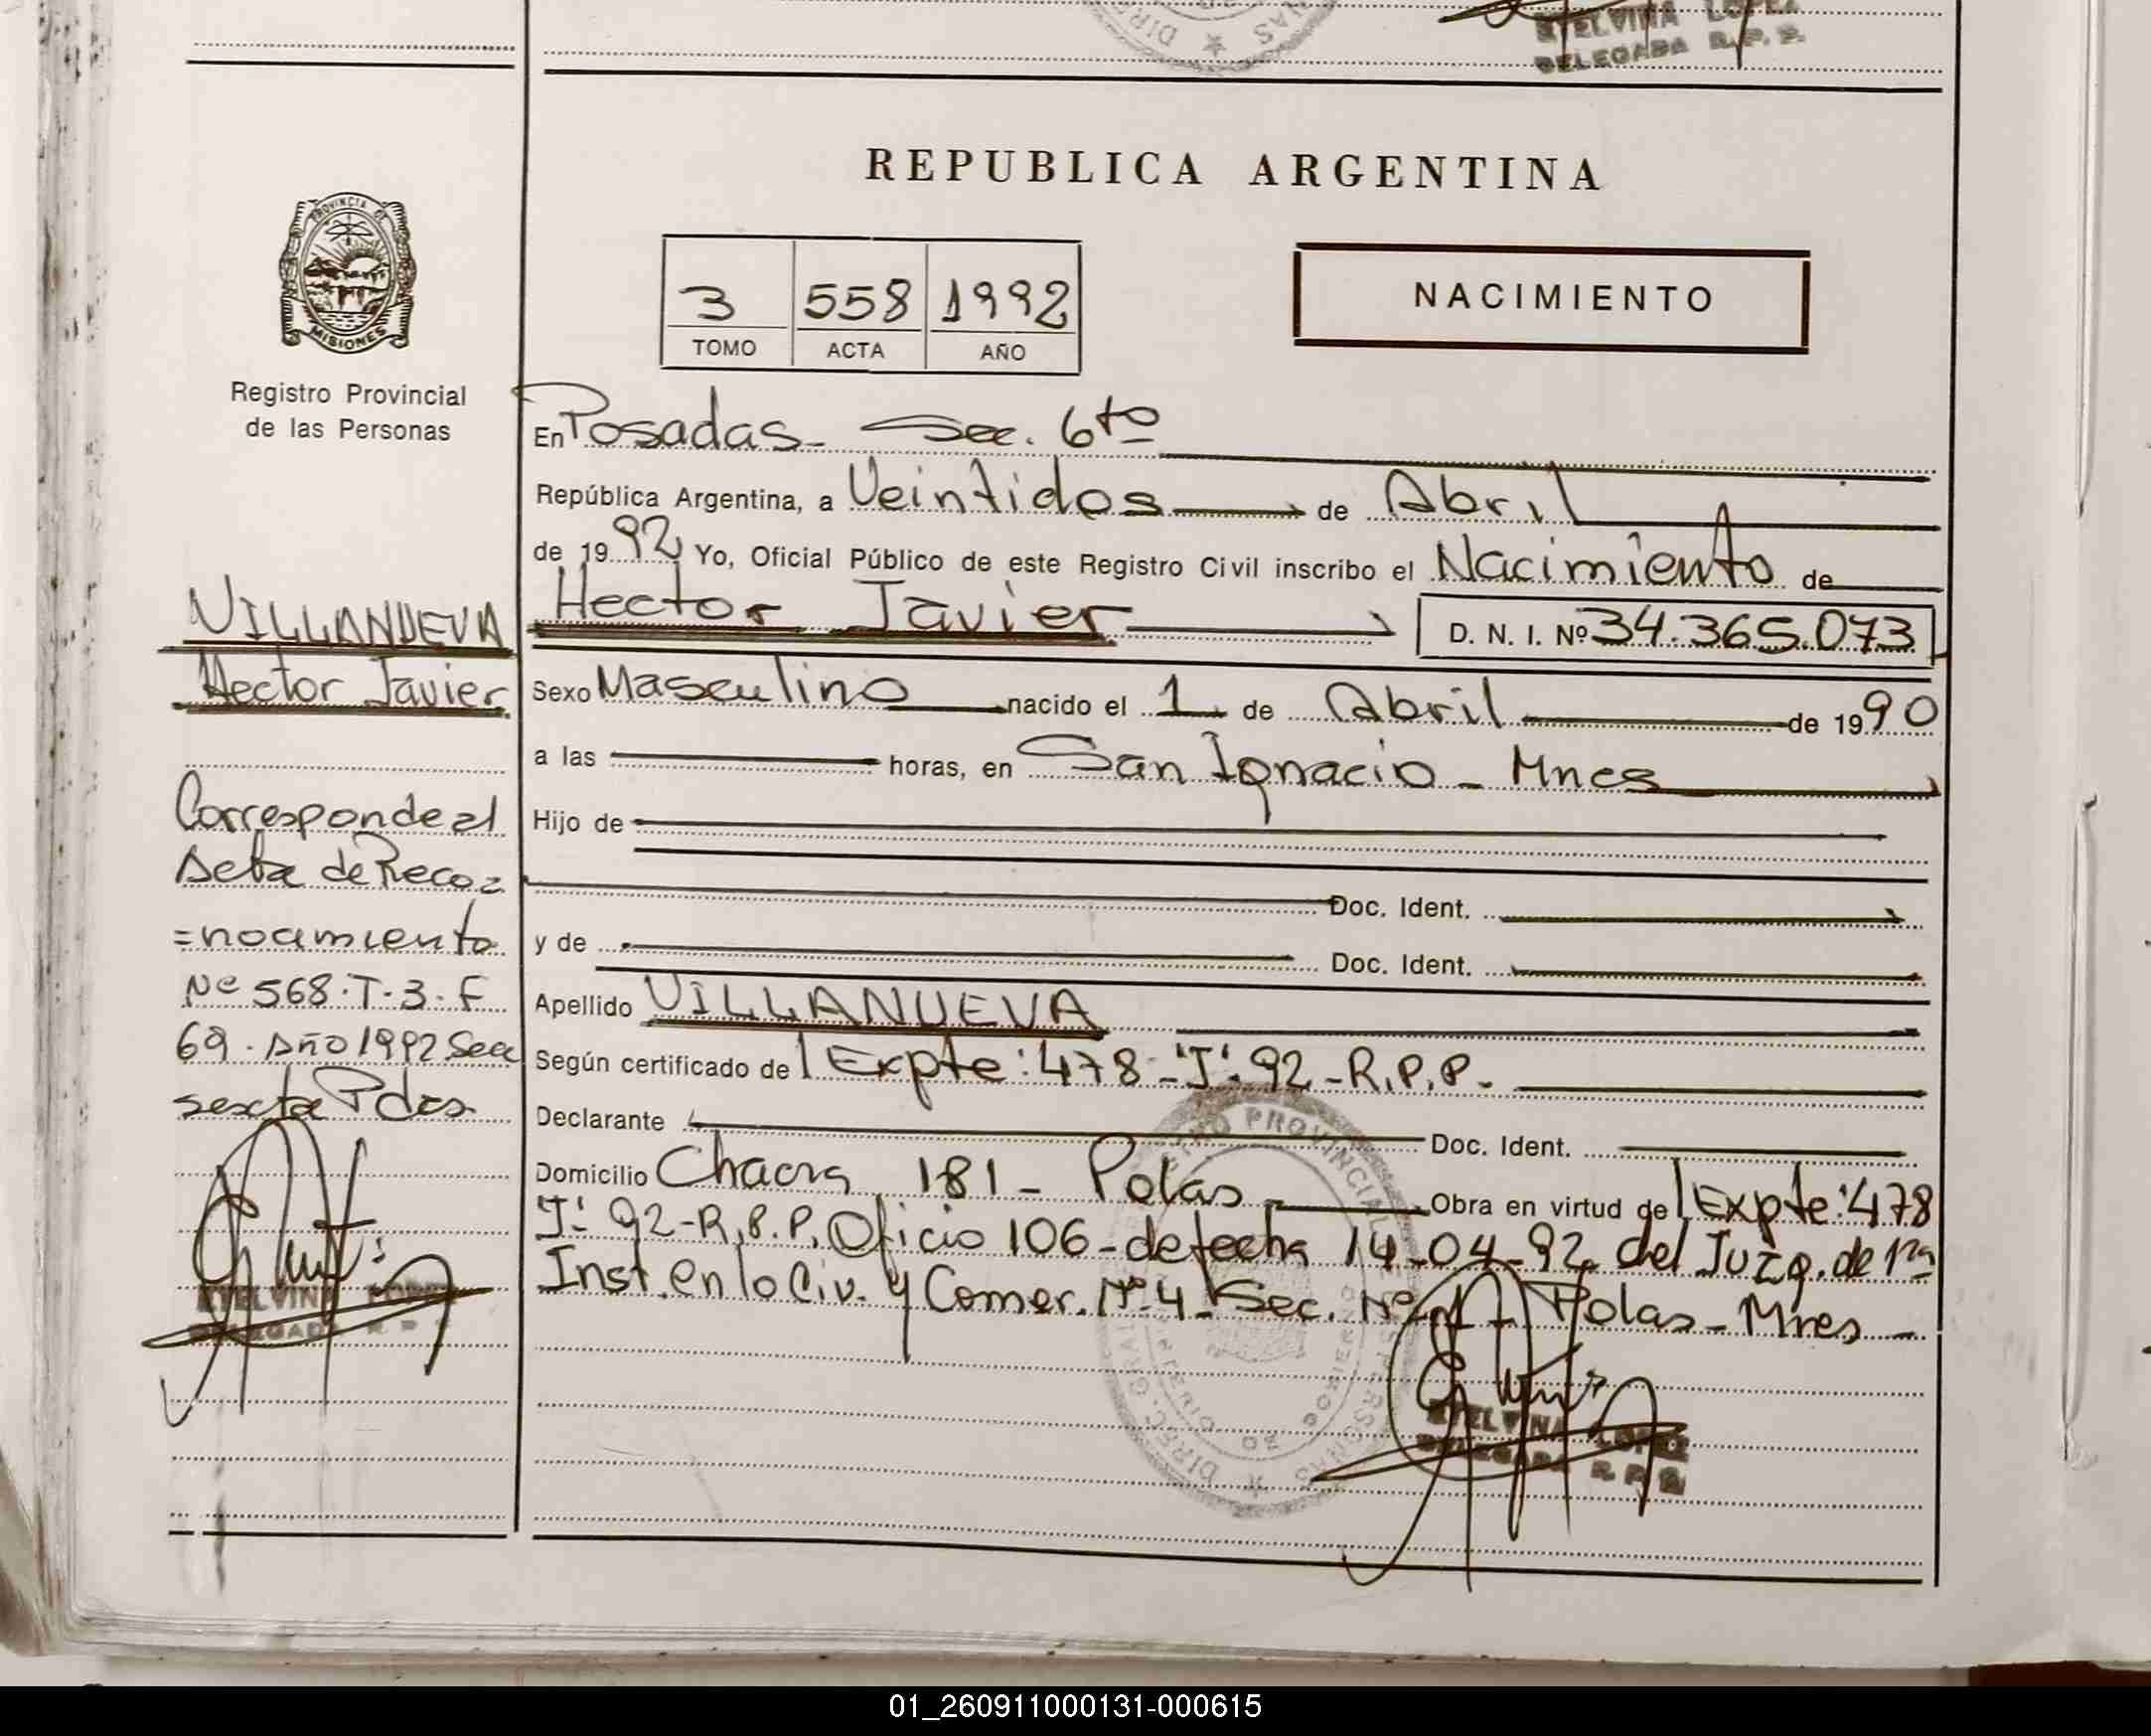 ETELVINA LOPEZ
DELEGADA R. P. P.
REPUBLICA ARGENTINA
PROVINCIA DE
MISIONES
Registro Provincial
de las Personas
3 558 1992
TOMO ACTA AÑO
NACIMIENTO
En Posadas - Sec. 6to
República Argentina, a Veintidos de Abril
de 1992 Yo, Oficial Público de este Registro Civil inscribo el Nacimiento de
Hector Javier D. N. I. Nº 34.365.073
Sexo Masculino nacido el 1 de Abril de 1990
a las horas, en San Ignacio - Mnes
Hijo de
Doc. Ident.
y de Doc. Ident.
Apellido VILLANUEVA
Según certificado de Expte: 478-"J"-92-R.P.P.
Declarante Doc. Ident.
Domicilio Chacra 181 - Pdas Obra en virtud de Expte: 478
"J" 92-R.P.P. Oficio 106-de fecha 14-04-92 del Juzg. de 1ra
Inst. en lo Civ. y Comer. Nº 4 - Sec. Nº Pdas - Mnes -
ETELVINA LOPEZ
DELEGADA R. P. P.
VILLANUEVA
Hector Javier
Corresponde al
Acta de Reco=
=nocimiento
Nº 568-T-3-F
69-Año 1992 Sec
sexta Pdas
ETELVINA LOPEZ
DELEGADA R. P. P.
01_260911000131-000615